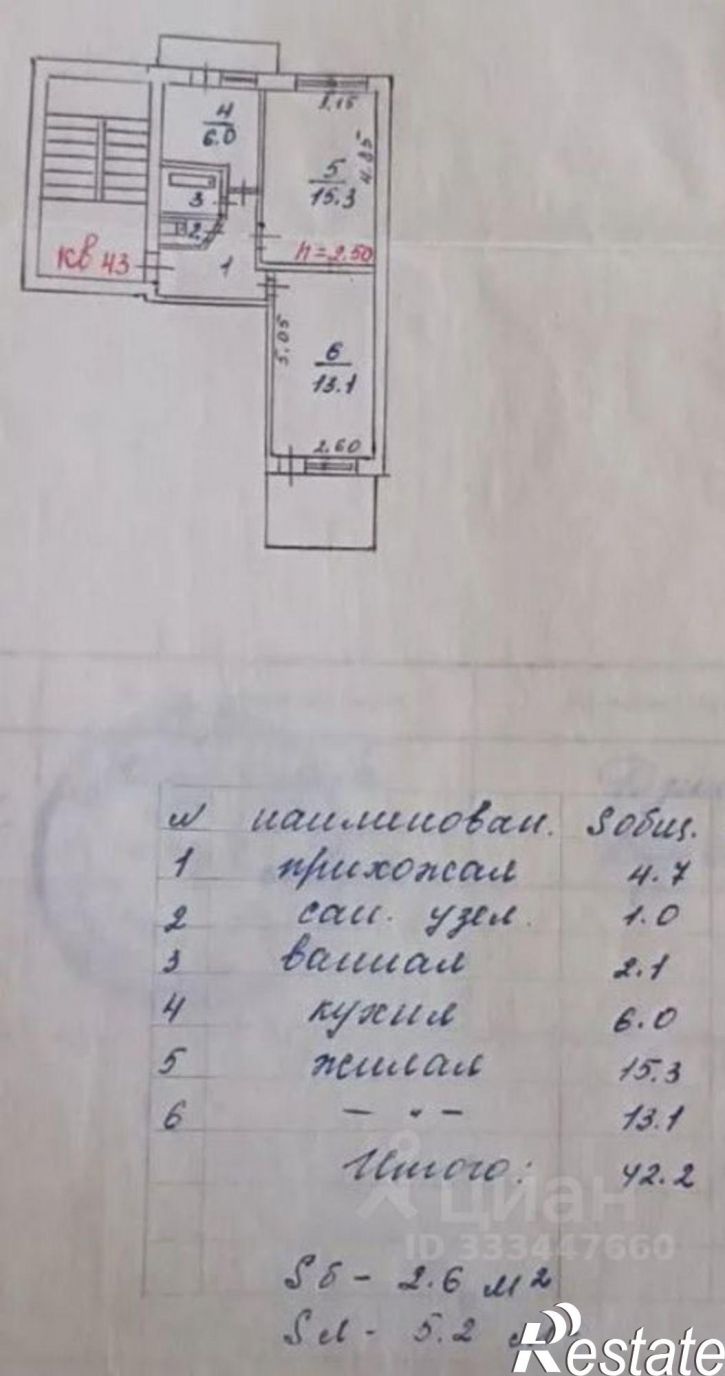 4
6.0
3.15
4.85
5
15.3
3
2
1
кв 43
h=2.50
5.05
6
13.1
2.60
N наименован. Sобщ.
1 прихожая 4.7
2 сан. узел. 1.0
3 ванная 2.1
4 кухня 6.0
5 жилая 15.3
6 — " — 13.1
Итого: 42.2
циан
ID 333447660
Sб - 2.6 м²
Sл - 5.2 м²
Restate